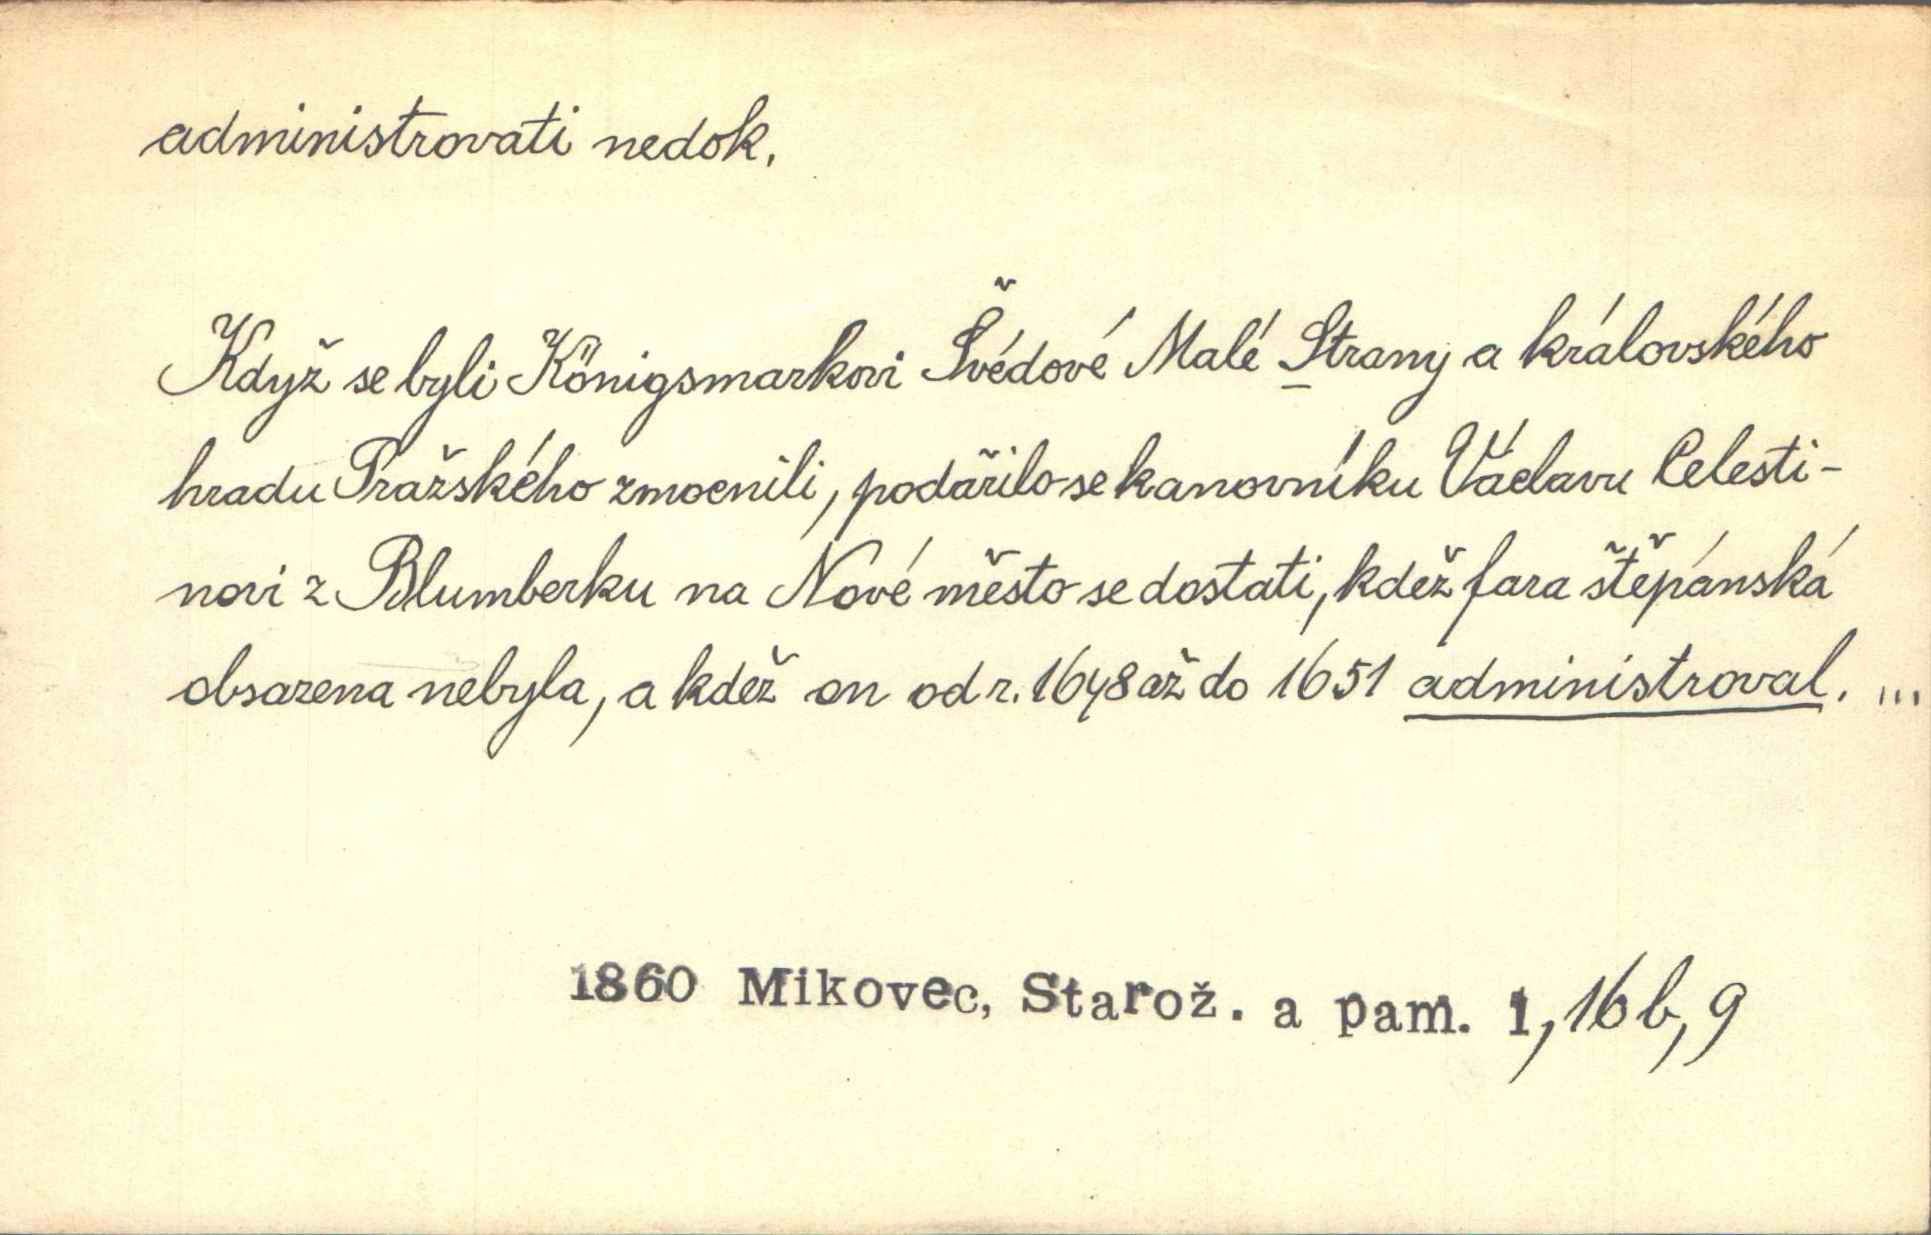 administrovati nedok.
Když se byli Königsmarkovi Švédové Malé Strany a královského
hradu Pražského zmocnili, podařilo se kanovníku Václavu Celesti-
novi z Blumberku na Nové město se dostati, kdež fara štěpánská
obsazena nebyla, a kdež on od r. 1648 až do 1651 administroval. ...
1860 Mikovec, Starož. a pam. 1, 16 b, 9